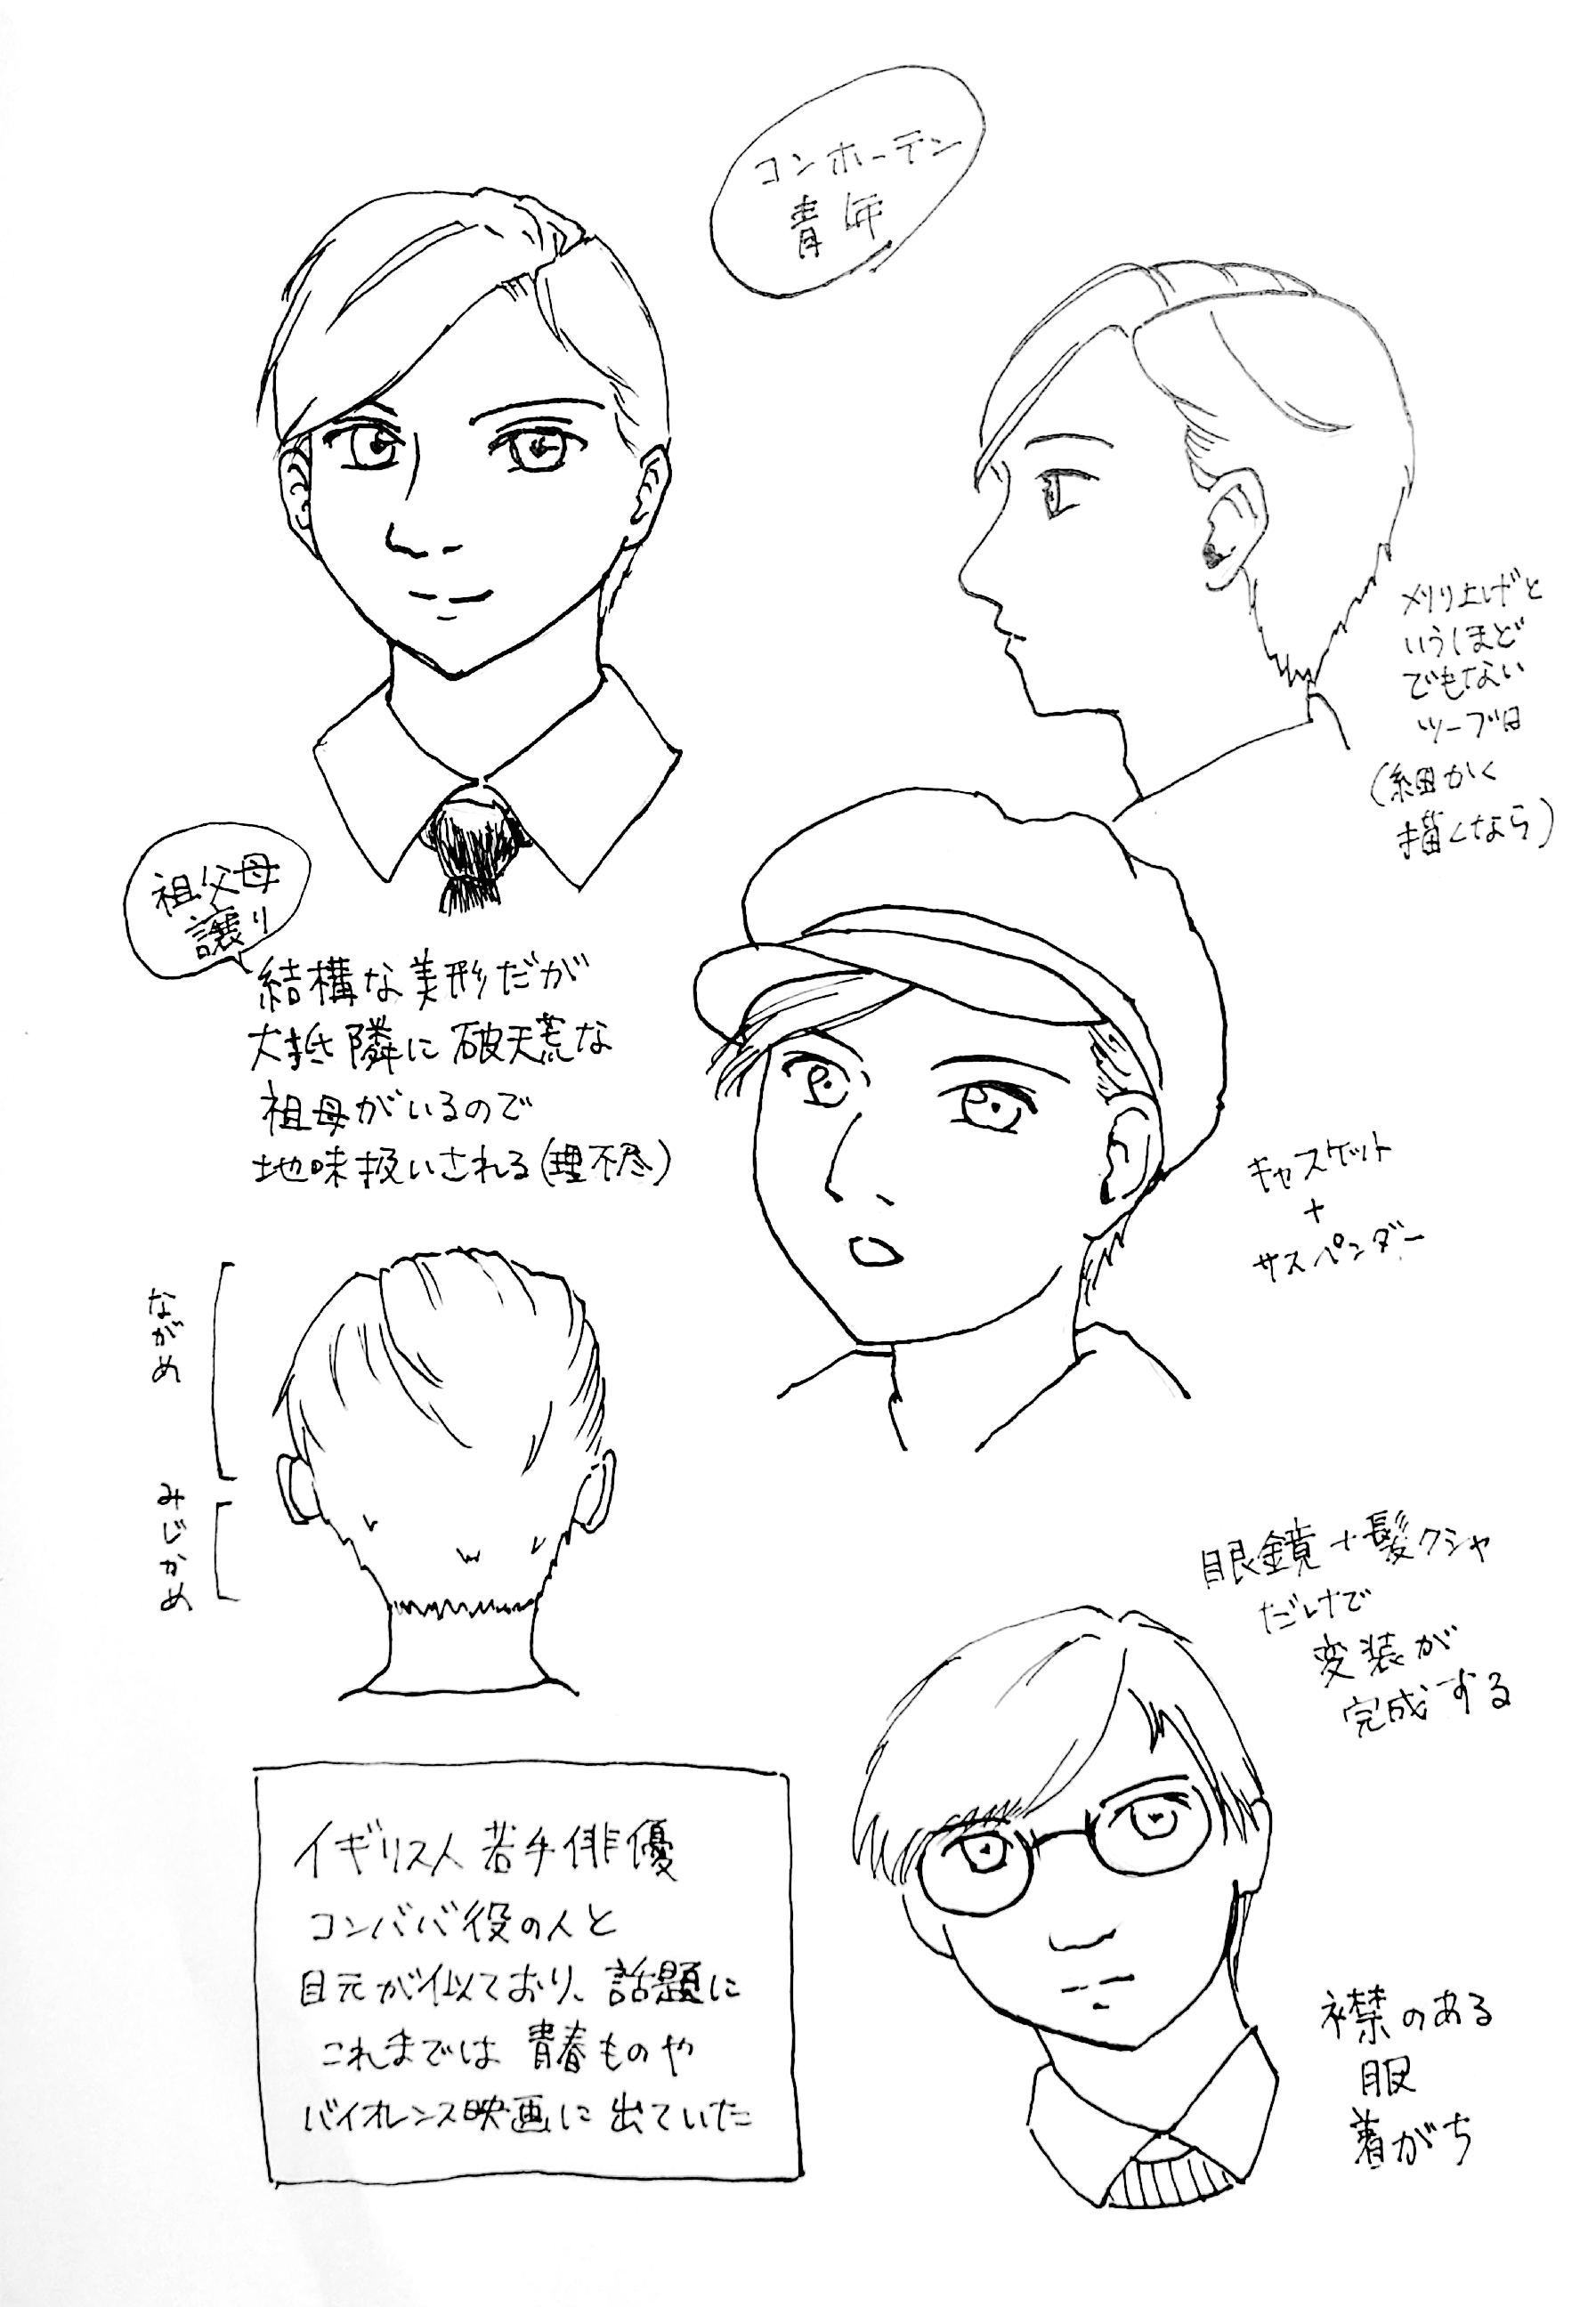 コンホーテン
青年
メリリ上げと
いうほど
でもない
ツーブロ
(細かく
描くなら)
祖父母
譲り
結構な美形だが
大抵隣に破天荒な
祖母がいるので
地味扱いされる(理不尽)
キャスケット
+
サスペンダー
ながめ
みじかめ
眼鏡+髪クシャ
だけで
変装が
完成する
イギリス人若手俳優
コンババ役の人と
目元が似ており、話題に
これまでは青春ものや
バイオレンス映画に出ていた
襟のある
服
着がち